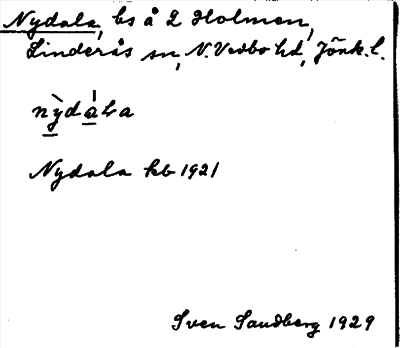 Nydala, bs å L Holmen,
Linderås sn, N. Vedbo hd, Jönk. l.
nỳdáLa
Nydala kb 1921
Sven Sandberg 1929